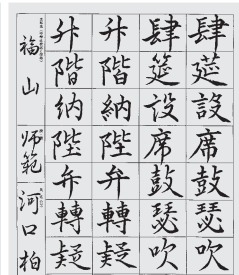 肆莚設席鼓瑟吹
肆筵設席鼓瑟吹
升階納陛弁轉疑
升階納陛弁轉疑
福山
師範
河口柏